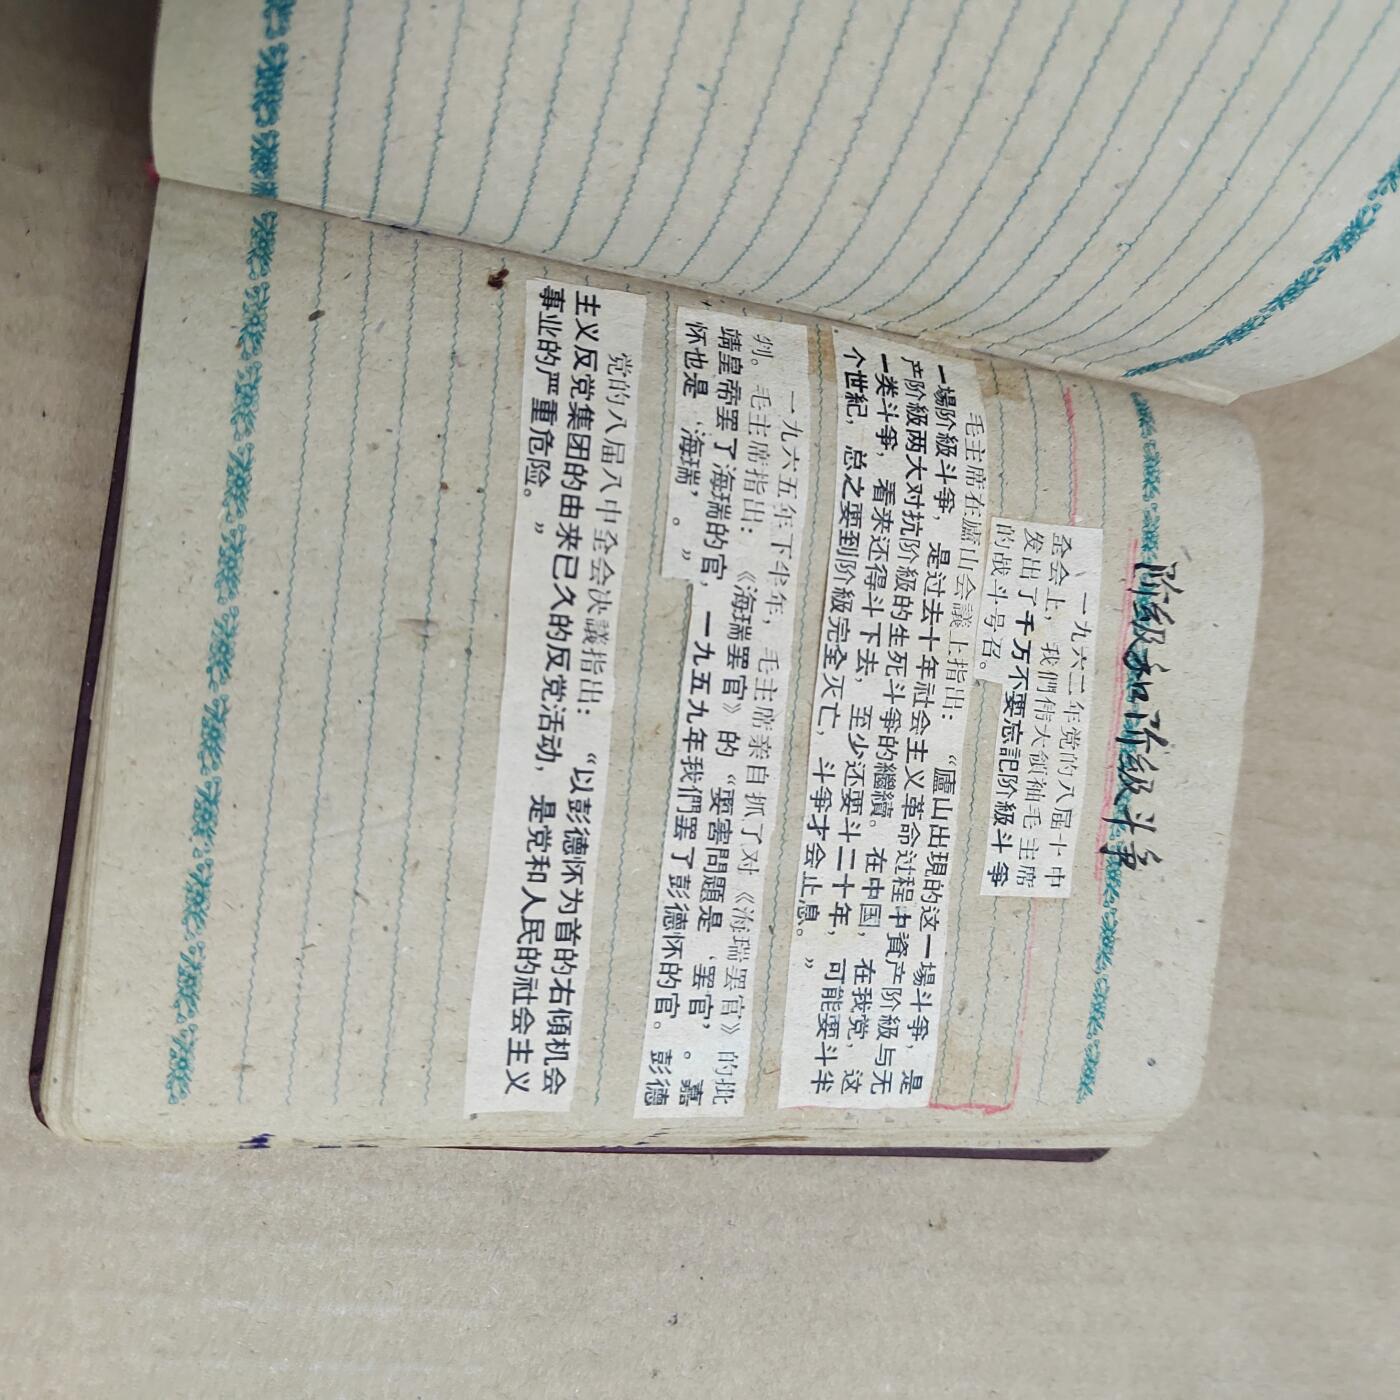 阶级和阶级斗争
一九六二年党的八届十中
全会上，我們伟大領袖毛主席
发出了千万不要忘記阶級斗爭
的战斗号召。
毛主席在廬山会議上指出：“廬山出現的这一場斗爭，是
一場阶級斗爭，是过去十年社会主义革命过程中資产阶級与无
产阶級两大对抗阶級的生死斗爭的繼續。在中国，在我党，这
一类斗爭，看来还得斗下去，至少还要斗二十年，可能要斗半
个世紀，总之要到阶級完全灭亡，斗爭才会止息。”
一九六五年下半年，毛主席亲自抓了对《海瑞罢官》的批
判。毛主席指出：《海瑞罢官》的“要害問題是‘罢官’。嘉
靖皇帝罢了海瑞的官，一九五九年我們罢了彭德怀的官。彭德
怀也是‘海瑞’。”
党的八届八中全会决議指出：“以彭德怀为首的右傾机会
主义反党集团的由来已久的反党活动，是党和人民的社会主义
事业的严重危险。”